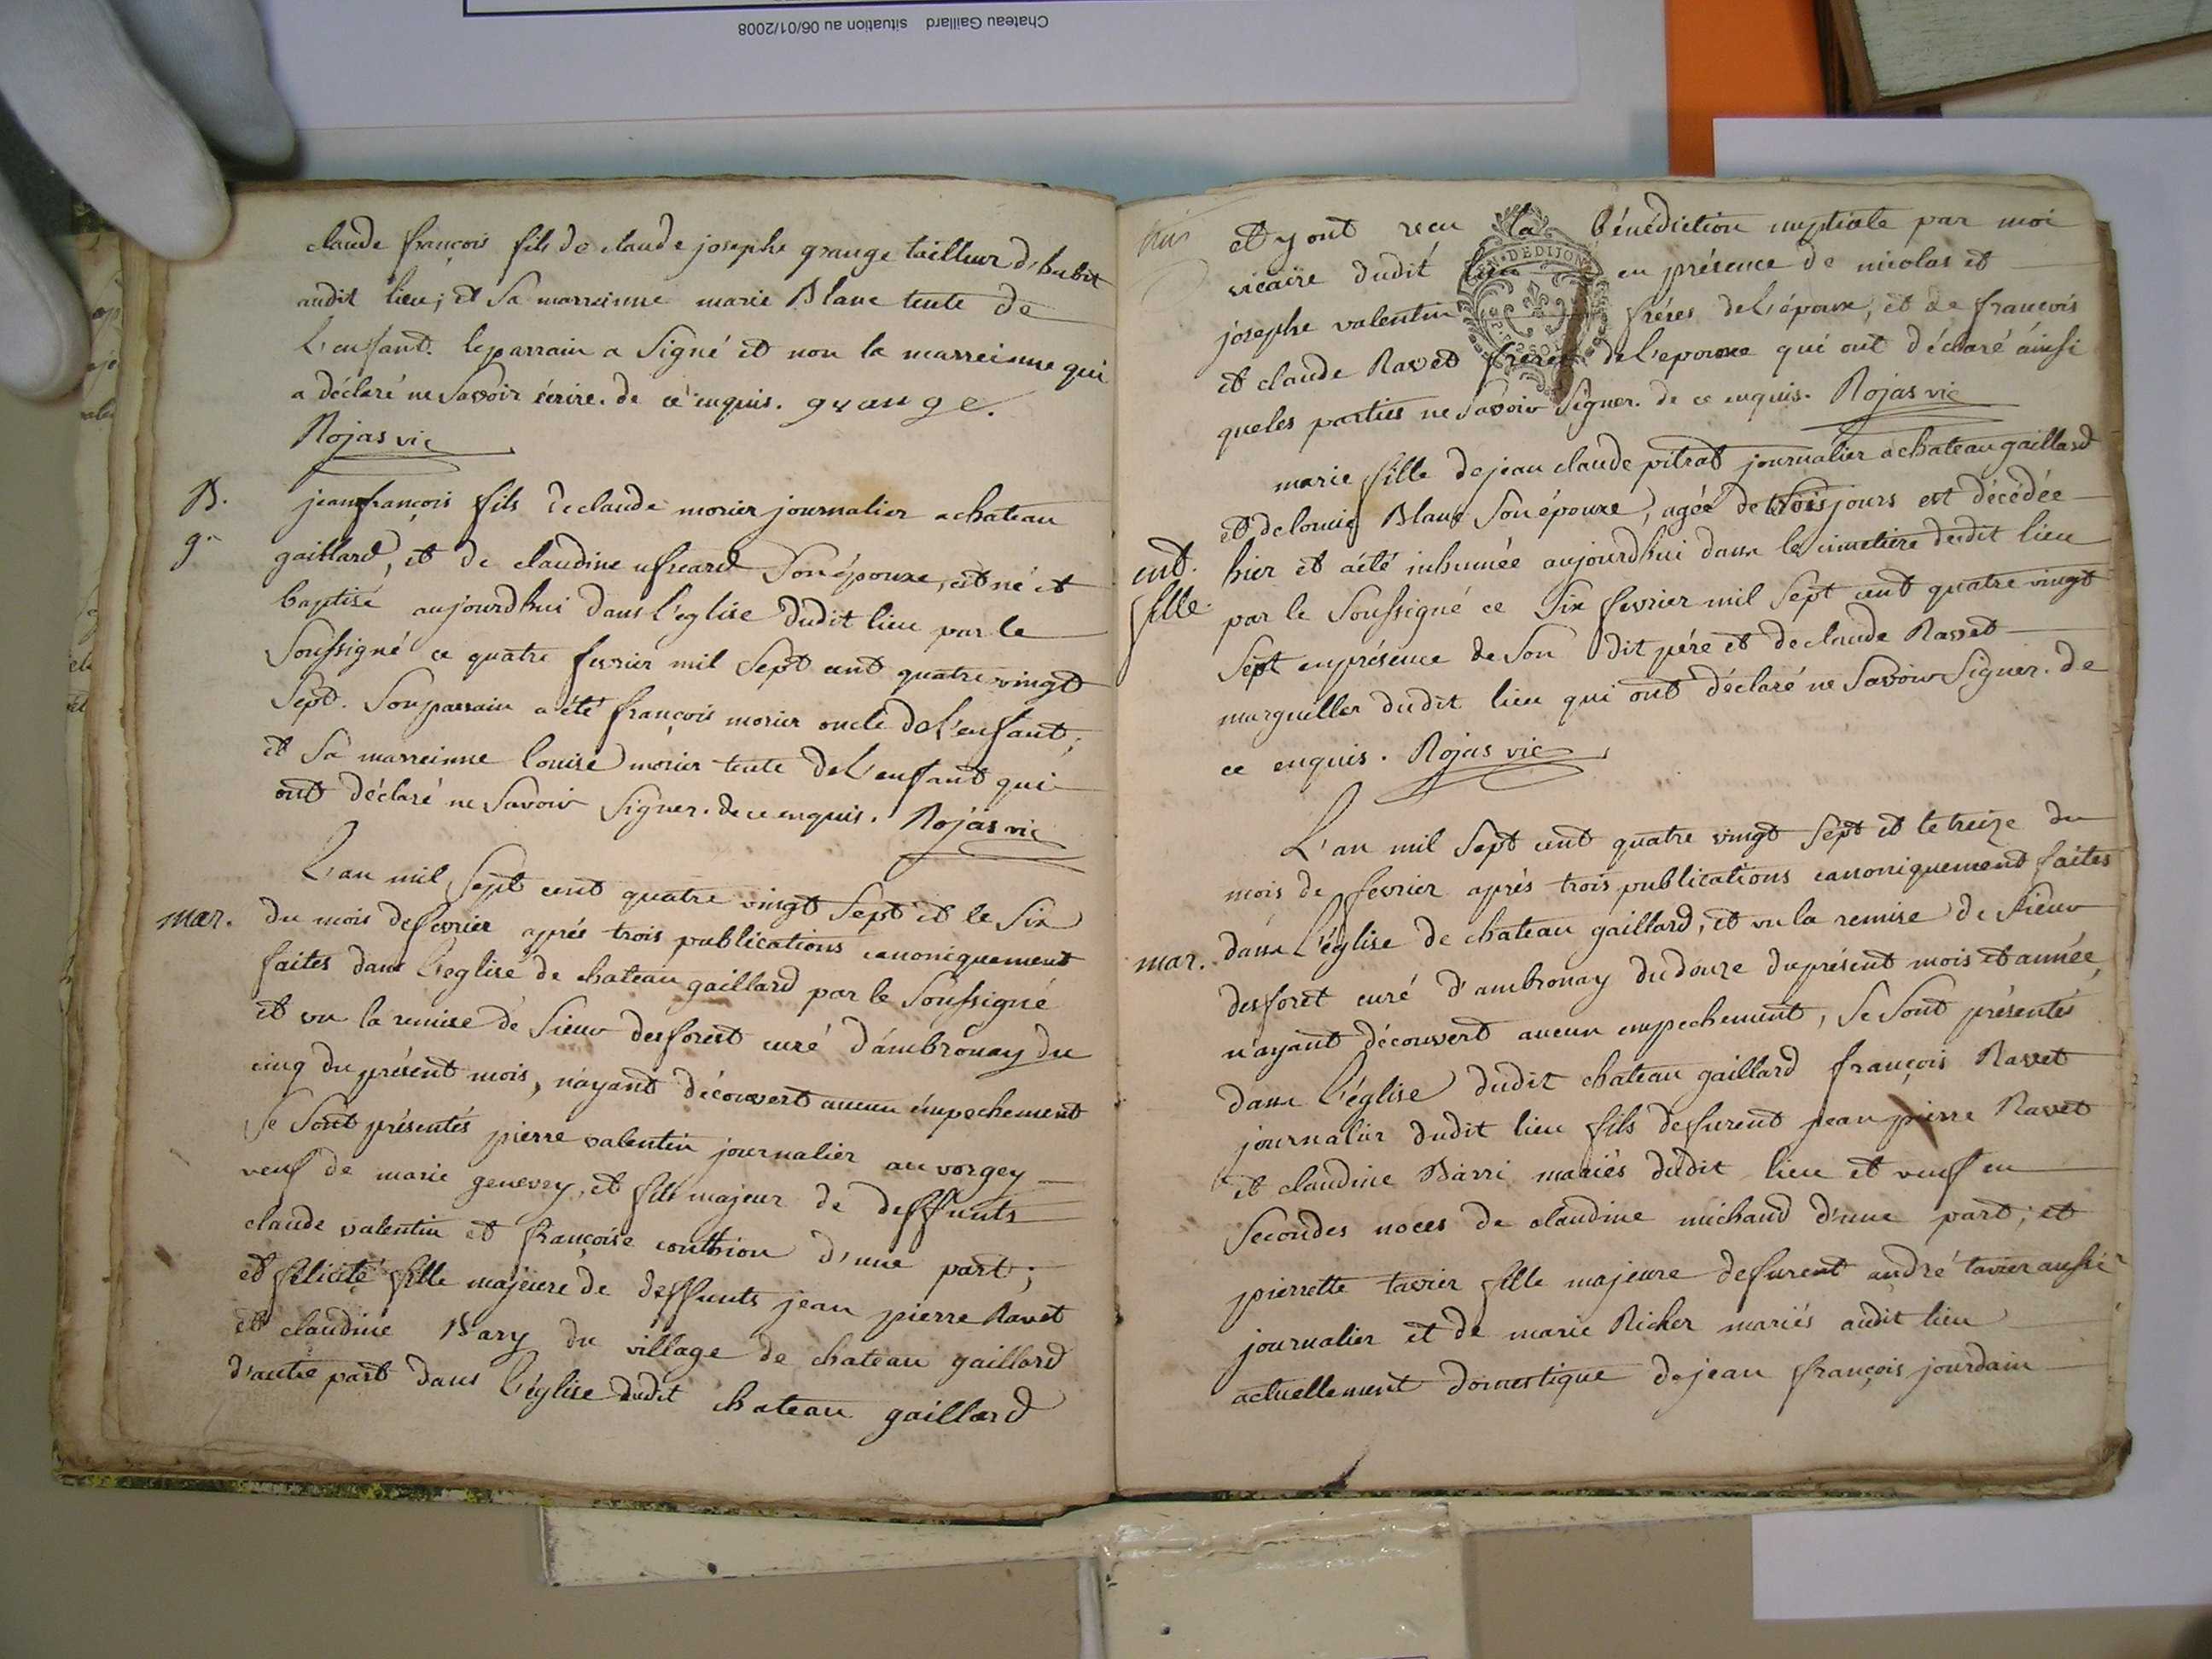 Chateau Gaillard situation au 06/01/2008
claude françois fils de claude josephe grange tailleur d'habit
audit lieu; et Sa marreinne marie Blanc tente de
L'enfant. le parrain a Signé et non la marreinne qui
a déclaré ne Savoir écrire. de ce enquis. grange.
Rojas vic
B.
g.
jean françois fils de claude morier journalier a chateau
gaillard, et de claudine Son épouxe, est né et
baptisé aujourdhui dans l'église dudit lieu par le
Soussigné ce quatre fevrier mil Sept cent quatre vingt
Sept. Son parrain a été françois morier oncle de L'enfant;
et Sa marreinne louise morier tente de L'enfant qui
ont déclaré ne Savoir Signer. de ce enquis. Rojas vic
mar.
L'an mil Sept cent quatre vingt Sept et le Six
du mois de fevrier aprés trois publications canoniquement
faites dans l'eglise de chateau gaillard par le Soussigné
et vu la remise de Sieur desforest curé d'ambronay du
cinq du présent mois, n'ayant découvert aucun émpechement
Se Sont présentés pierre valentin journalier au vorgey
veuf de marie genevry, et fils majeur de deffunts
claude valentin et françoise conthion d'une part;
et félicité fille majeure de deffunts jean pierre Ravet
et claudine Bary du village de chateau gaillard
d'autre part dans l'église dudit chateau gaillard
et y ont recu la bénédiction nuptiale par moi
vicaire dudit lieu en présence de nicolas et
josephe valentin fréres de L'époux, et de françois
et claude Ravet freres de L'epouxe qui ont déclaré áinsi
que les parties ne Savoir Signer. de ce enquis. Rojas vic
GEN · DE DIJON
ent.
fille
marie fille de jean claude pitrat journalier a chateau gaillard
et de louise Blanc Son épouxe, agée de trois jours est décédée
hier et a été inhumée aujourdhui dans le cimetiere dudit lieu
par le Soussigné ce Six fevrier mil Sept cent quatre vingt
Sept en présence de Son dit pére et de claude Ravet
marguiller dudit lieu qui ont déclaré ne Savoir Signer. de
ce enquis. Rojas vic
mar.
L'an mil Sept cent quatre vingt Sept et le treize du
mois de fevrier aprés trois publications canoniquement faites
dans L'église de chateau gaillard, et vu la remise de Sieur
desforet curé d'ambronay du douze du présent mois et année,
n'ayant découvert aucun empechement, Se Sont présentés
dans l'église dudit chateau gaillard françois Ravet
journalier dudit lieu fils de furent jean pierre Ravet
et claudine Barri mariés dudit lieu et veuf en
Secondes noces de claudine michaud d'une part; et
pierrette tavier fille majeure de furent andré tavier aussi
journalier et de marie Richer mariés audit lieu
actuellement domestique de jean françois jourdain